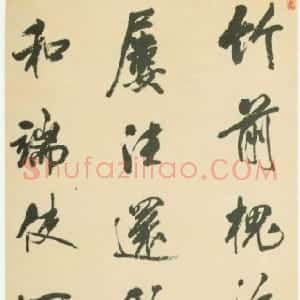 竹前槐
屡注還
和端使
Shufaziliao.com